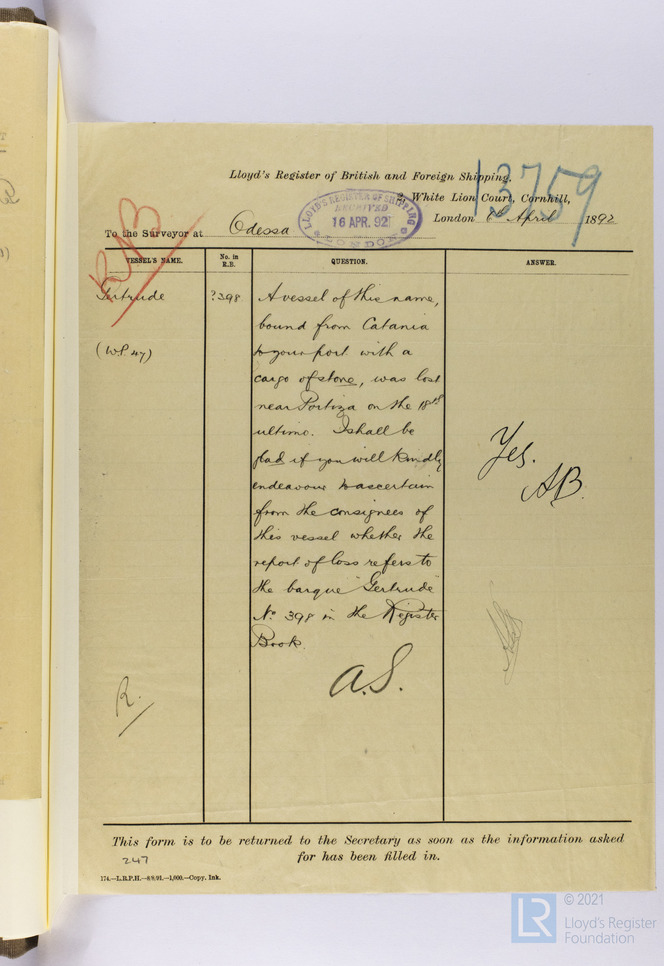 13759
Lloyd's Register of British and Foreign Shipping.
2, White Lion Court, Cornhill,
LLOYD'S REGISTER OF SHIPPING
RECEIVED
16 APR. 92
LONDON
London 8th April 1892
To the Surveyor at Odessa
VESSEL'S NAME.
No. in R.B.
QUESTION.
ANSWER.
Gertrude
?398
A vessel of this name,
bound from Catania
(W.S. 47)
to your port with a
cargo of stone, was lost
near Portiza on the 18th
ultimo. I shall be
glad if you will kindly
endeavour to ascertain
from the consignees of
this vessel whether the
report of loss refers to
the barque "Gertrude"
No. 398 in the Register
Book.
A.S.
Yes.
AB.
R.
This form is to be returned to the Secretary as soon as the information asked
for has been filled in.
247
174.—L.R.P.H.—8.9.91.—1,000.—Copy. Ink.
LR
© 2021
Lloyd's Register
Foundation